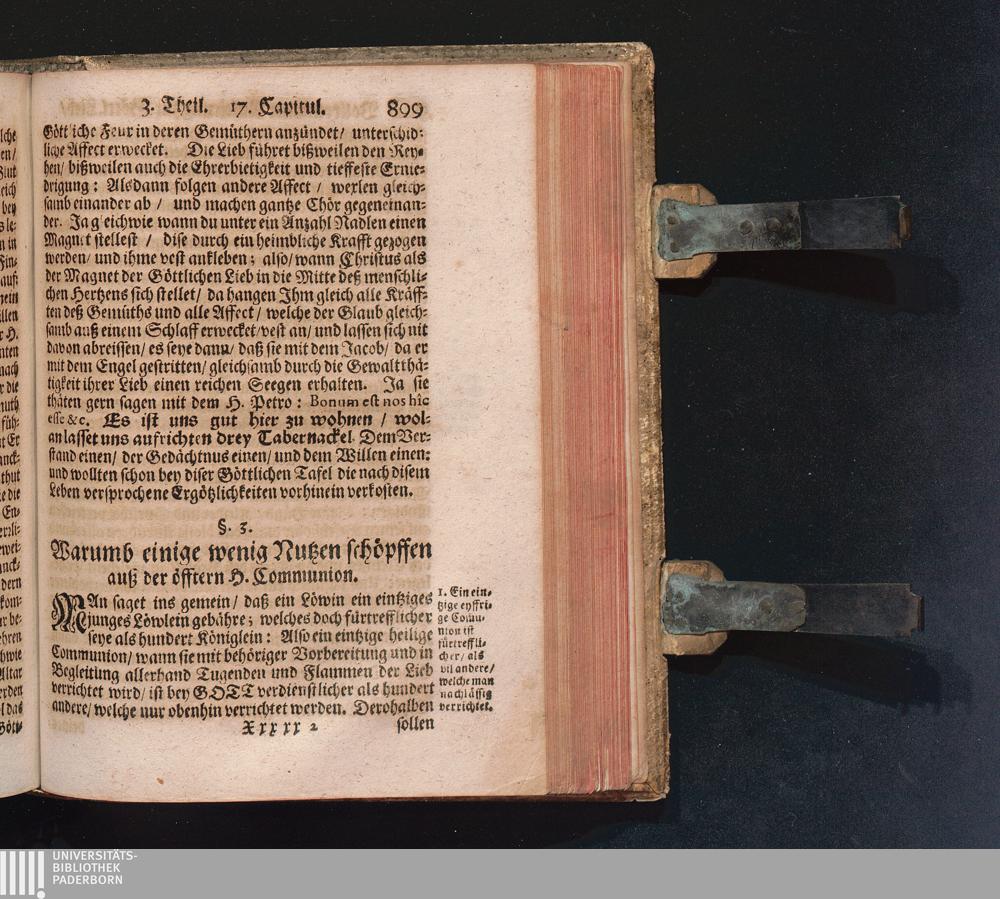 3. Theil. 17. Capitul. 899
Göttliche Feur in deren Gemüthern anzündet/ unterschid-
liche Affect erwecket. Die Lieb führet bißweilen den Rey-
hen/ bißweilen auch die Ehrerbietigkeit und tieffeste Ernie-
drigung: Alsdann folgen andere Affect / wexlen gleich-
samb einander ab / und machen gantze Chör gegeneinan-
der. Ja gleichwie wann du unter ein Anzahl Nadlen einen
Magnet stellest / dise durch ein heimbliche Krafft gezogen
werden/ und ihme vest ankleben; also/ wann Christus als
der Magnet der Göttlichen Lieb in die Mitte deß menschli-
chen Hertzens sich stellet/ da hangen Ihm gleich alle Kräff-
ten deß Gemüths und alle Affect/ welche der Glaub gleich-
samb auß einem Schlaff erwecket/ vest an/ und lassen sich nit
davon abreissen/ es seye dann/ daß sie mit dem Jacob/ da er
mit dem Engel gestritten/ gleichsamb durch die Gewaltthä-
tigkeit ihrer Lieb einen reichen Seegen erhalten. Ja sie
thäten gern sagen mit dem H. Petro: Bonum est nos hîc
esse &c. Es ist uns gut hier zu wohnen / wol-
an lasset uns aufrichten drey Tabernackel. Dem Ver-
stand einen/ der Gedächtnus einen/ und dem Willen einen:
und wollten schon bey diser Göttlichen Tafel die nach disem
Leben versprochene Ergötzlichkeiten vorhinein verkosten.
§. 3.
Warumb einige wenig Nutzen schöpffen
auß der öfftern H. Communion.
MAn saget ins gemein/ daß ein Löwin ein eintziges
junges Löwlein gebähre; welches doch fürtrefflicher
seye als hundert Königlein: Also ein eintzige heilige
Communion/ wann sie mit behöriger Vorbereitung und in
Begleitung allerhand Tugenden und Flammen der Lieb
verrichtet wird/ ist bey GOTT verdienstlicher als hundert
andere/ welche nur obenhin verrichtet werden. Derohalben
Xxxxx 2 sollen
1. Ein ein-
tzige eyffri-
ge Commu-
nion ist
fürtreffli-
cher/ als
vil andere/
welche man
nachlässig
verrichtet.
UNIVERSITÄTS-
BIBLIOTHEK
PADERBORN